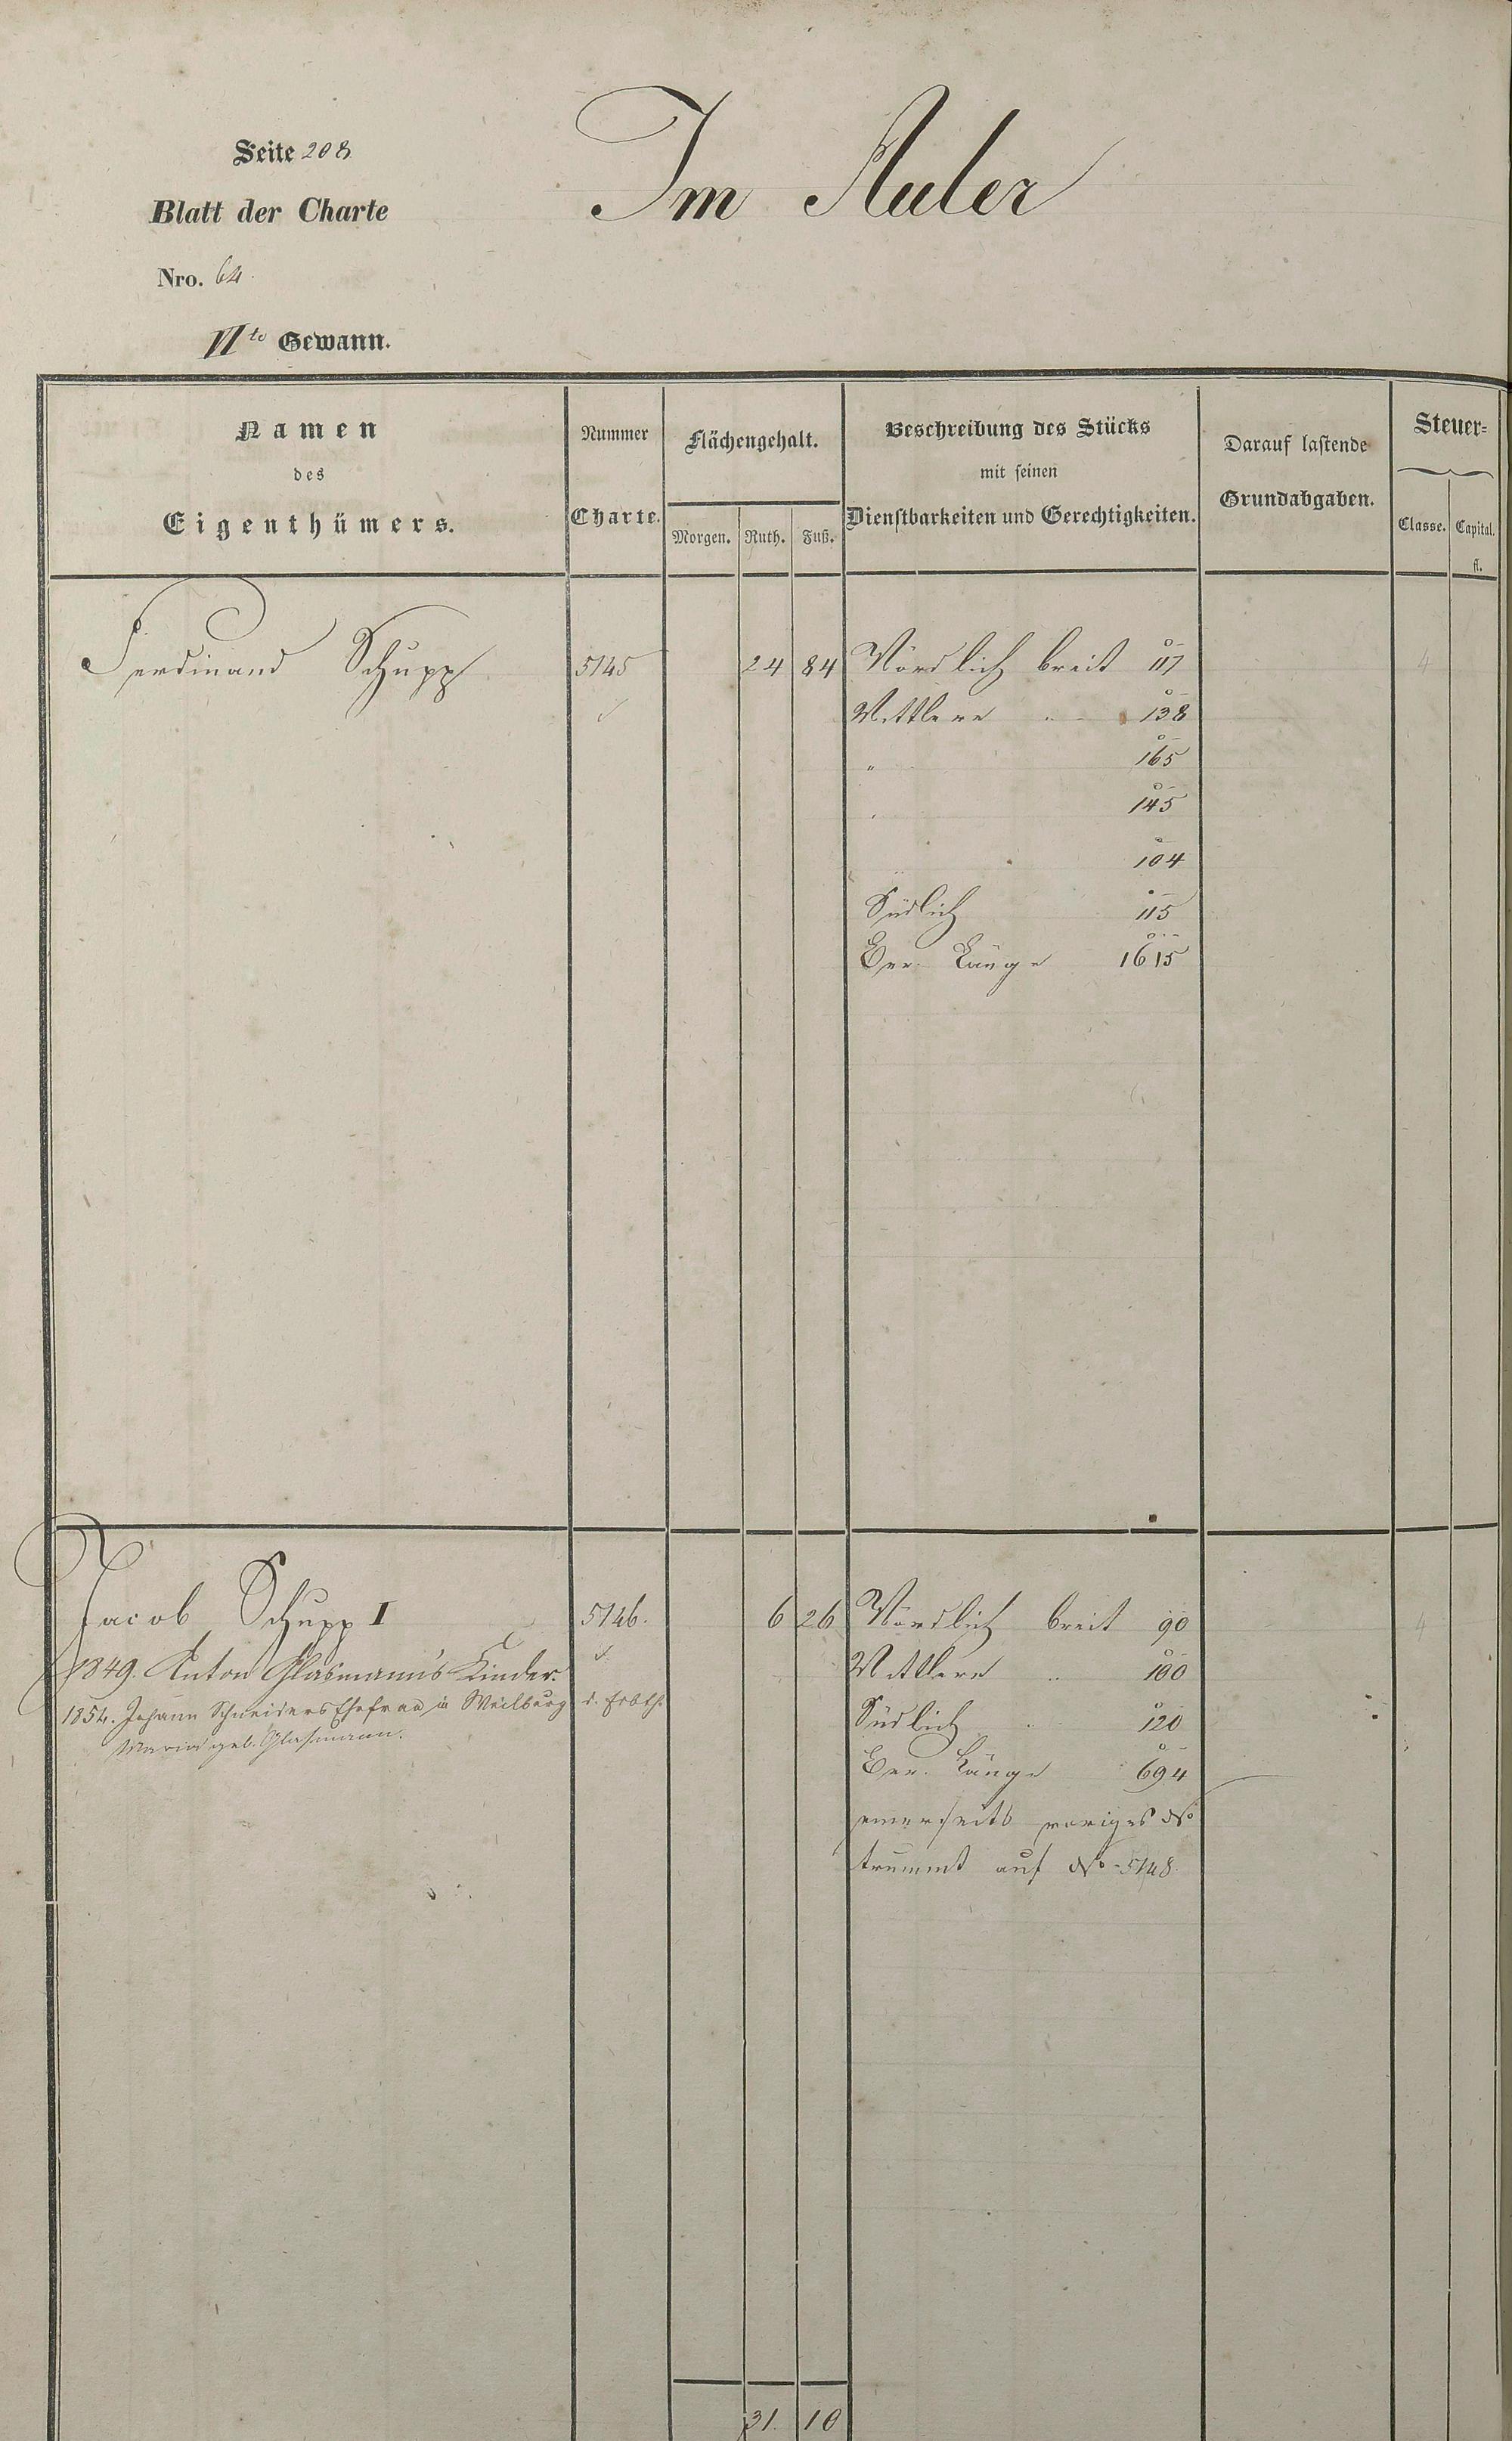 Seite 208
Im Auler
Blatt der Charte
Nro. 64.
VIte Gewann.
Namen des Eigenthümers.
Nummer Charte.
Flächengehalt.
Morgen. Ruth. Fuß.
Beschreibung des Stücks mit seinen Dienstbarkeiten und Gerechtigkeiten.
Darauf lastende Grundabgaben.
Steuer=
Classe. Capital.
fl.
Ferdinand Schupp 5145 24 84 Nördlich breit 117 4
Mittlere " 138
" 165
" 145
104
Südlich 115
Ber. Länge 1615
Jacob Schupp I 5146. 6 26 Nördlich breit 90 4
1849. Anton Glasmann's Kinder. Mittlere " 100
1854. Johann Schneiders Ehefrau in Weilburg d. Erbth. Südlich 120
Maria geb. Glasmann.
Ber. Länge 694
einerseits voriges No
trummt auf No 5148.
31 10